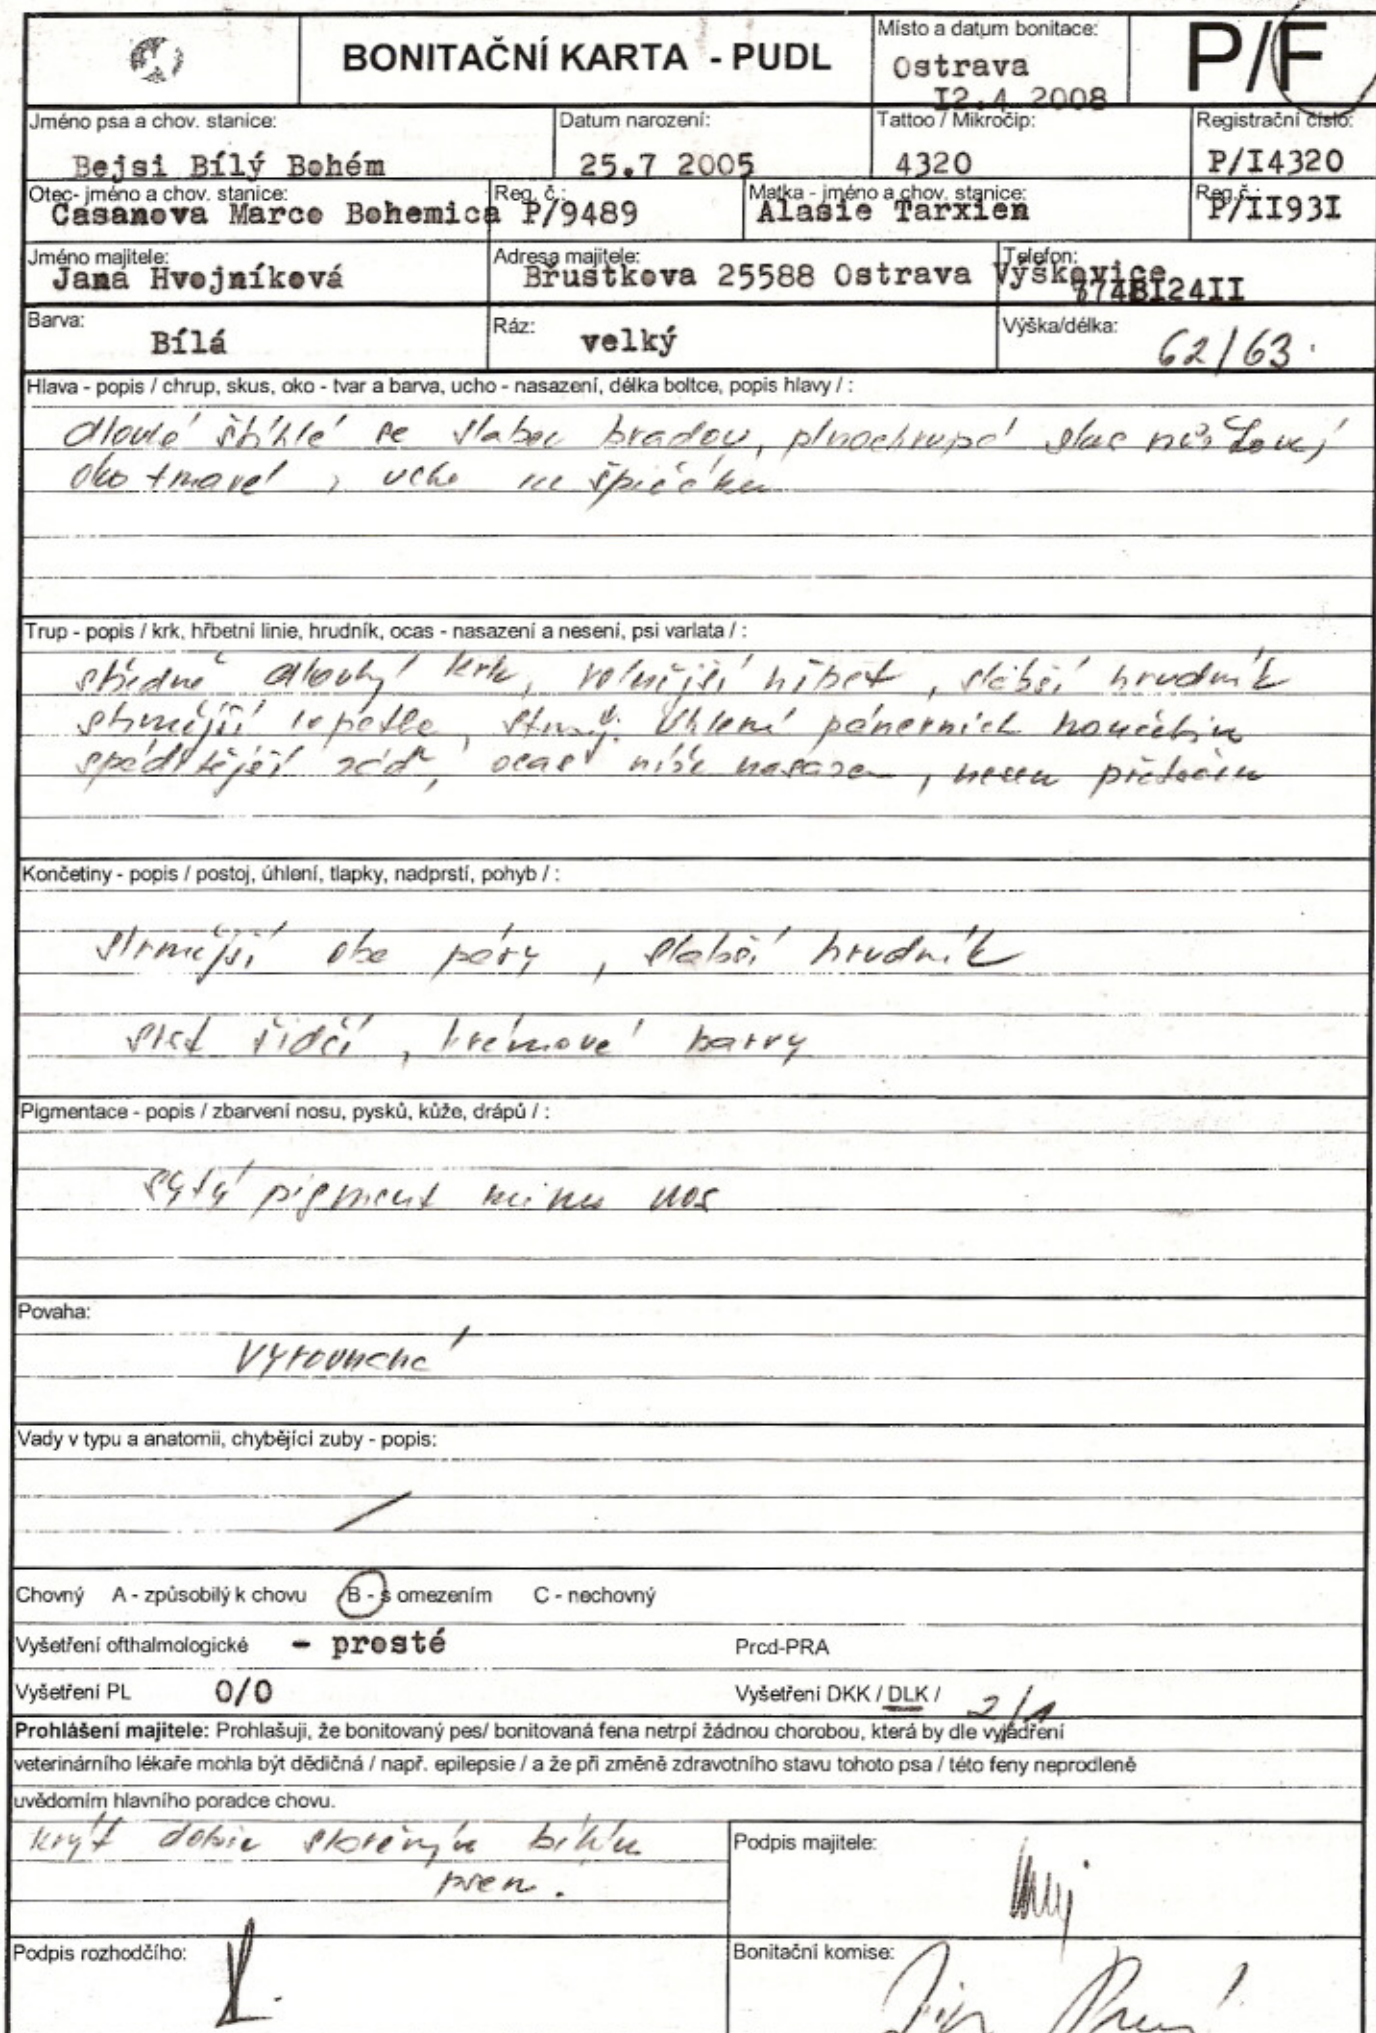 BONITAČNÍ KARTA - PUDL
Místo a datum bonitace:
Ostrava
I2.4 2008
P/F
Jméno psa a chov. stanice:
Bejsi Bílý Bohém
Datum narození:
25.7 2005
Tattoo / Mikročip:
4320
Registrační číslo:
P/I4320
Otec- jméno a chov. stanice:
Casanova Marco Bohemica
Reg. č.:
P/9489
Matka - jméno a chov. stanice:
Alasie Tarxien
Reg.č.:
P/II93I
Jméno majitele:
Jana Hvojníková
Adresa majitele:
Břustkova 25588 Ostrava Výškovice
Telefon:
Barva:
Bílá
Ráz:
velký
Výška/délka:
62/63
Hlava - popis / chrup, skus, oko - tvar a barva, ucho - nasazení, délka boltce, popis hlavy / :
dlouhé štíhlé se slabou bradou, plnochrupá skus nůžkový
oko tmavé, ucho ke špičáku
Trup - popis / krk, hřbetní linie, hrudník, ocas - nasazení a nesení, psi varlata / :
středně dlouhý krk, volnější hřbet, slabší hrudník
strmější lopatka, úhlení pánevních končetin
spáditější záď, ocas níže nasazen, nesen přetočen
Končetiny - popis / postoj, úhlení, tlapky, nadprstí, pohyb / :
strmější oba páry, slabší hrudník
srst řidší, krémové barvy
Pigmentace - popis / zbarvení nosu, pysků, kůže, drápů / :
sytý pigment mimo nos
Povaha:
vyrovnaná
Vady v typu a anatomii, chybějící zuby - popis:
/
Chovný A - způsobilý k chovu B - s omezením C - nechovný
Vyšetření ofthalmologické - prosté Prcd-PRA
Vyšetření PL 0/0 Vyšetření DKK / DLK / 2/1
Prohlášení majitele: Prohlašuji, že bonitovaný pes/ bonitovaná fena netrpí žádnou chorobou, která by dle vyjádření
veterinárního lékaře mohla být dědičná / např. epilepsie / a že při změně zdravotního stavu tohoto psa / této feny neprodleně
uvědomím hlavního poradce chovu.
krýt dobře stavěným bílým
psem.
Podpis majitele:
Podpis rozhodčího:
Bonitační komise: